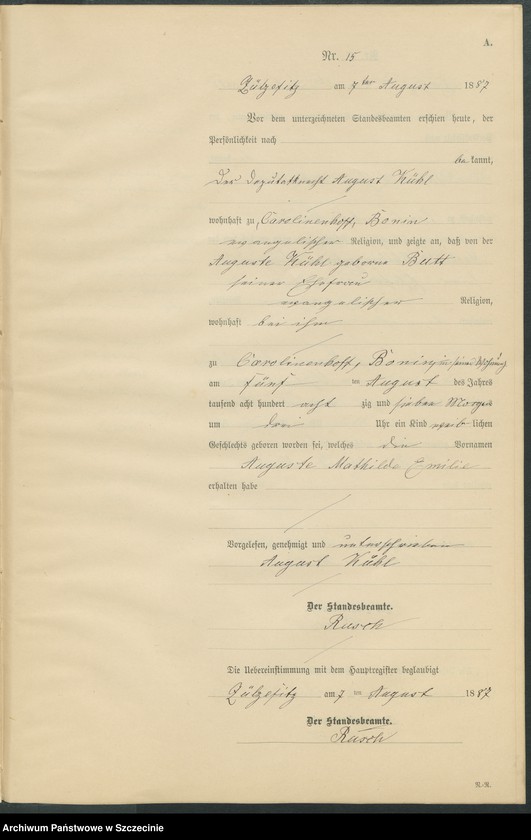 A.
Nr. 15
Zülzefitz am 7ten August 1887
Vor dem unterzeichneten Standesbeamten erschien heute, der
Persönlichkeit nach
be kannt,
Der Deputatknecht August Kühl
wohnhaft zu Carolinenhoff, Bonin
evangelischer Religion, und zeigte an, daß von der
Auguste Kühl geborne Butt
seiner Ehefrau
evangelischer Religion,
wohnhaft bei ihm
zu Carolinenhoff, Bonin, in seiner Wohnung
am fünf ten August des Jahres
tausend acht hundert acht zig und sieben Morgens
um drei Uhr ein Kind weib lichen
Geschlechts geboren worden sei, welches die Vornamen
Auguste Mathilde Emilie
erhalten habe
Vorgelesen, genehmigt und unterschrieben
August Kühl
Der Standesbeamte.
Rusch
Die Uebereinstimmung mit dem Hauptregister beglaubigt
Zülzefitz am 7 ten August 1887
Der Standesbeamte.
Rusch
R.-R.
Archiwum Państwowe w Szczecinie